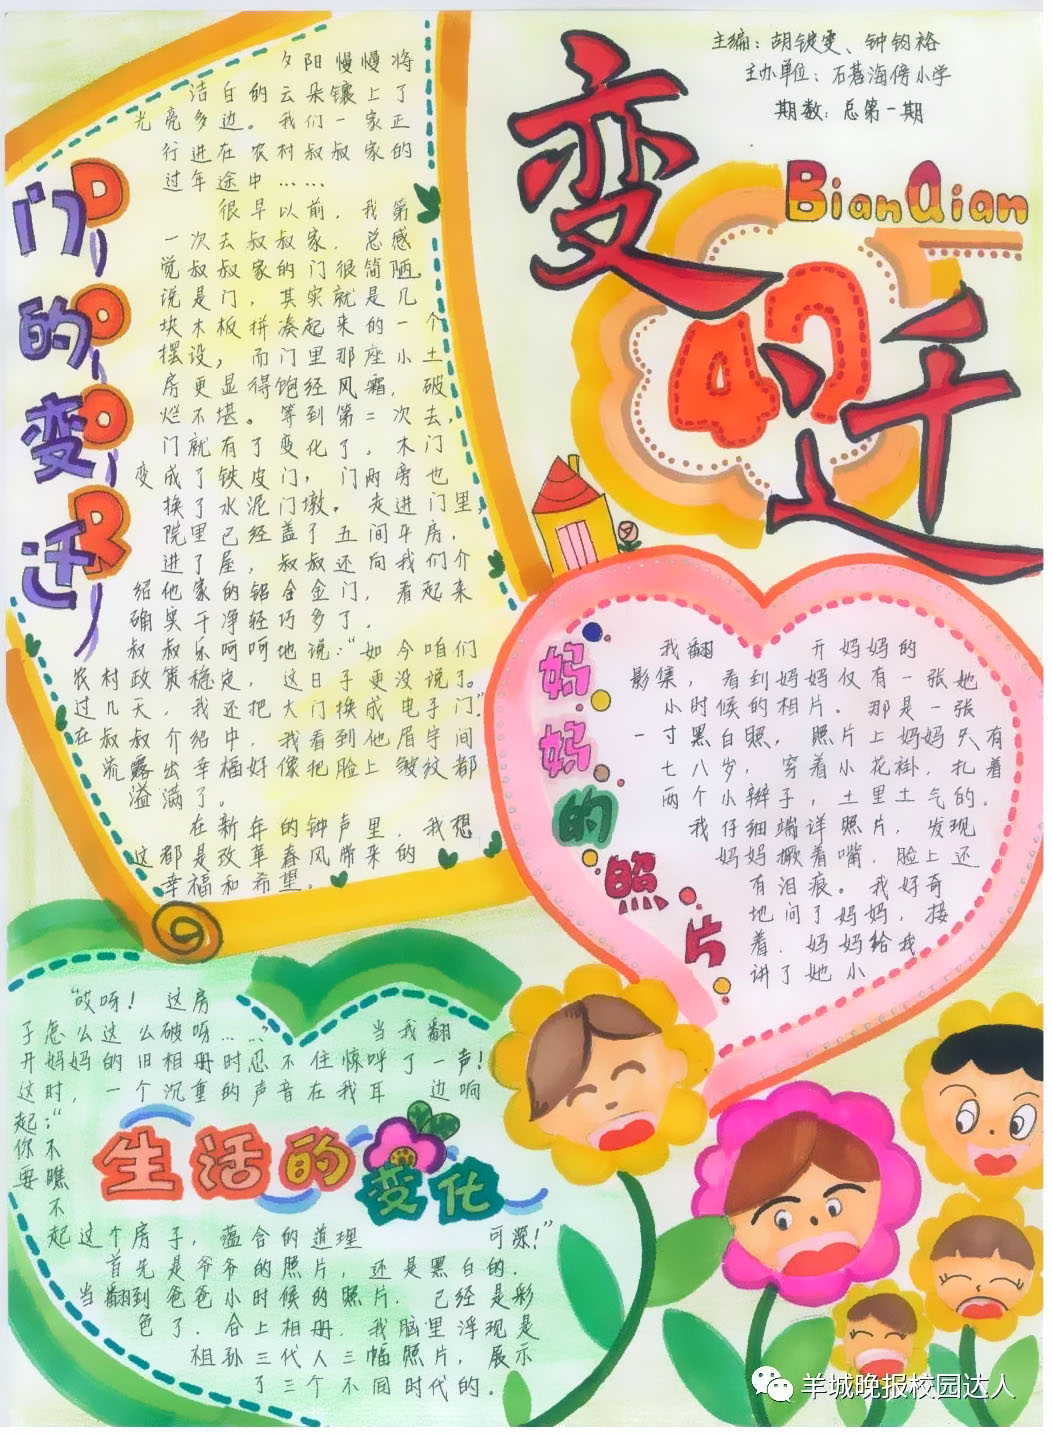 主编：胡铍雯、钟钧裕
主办单位：石碁海傍小学
期数：总第一期
变迁
BianQian
40
门的变迁
DOOR
夕阳慢慢将
洁白的云朵镶上了
光亮多边。我们一家正
行进在农村叔叔家的
过年途中……
很早以前，我第
一次去叔叔家，总感
觉叔叔家的门很简陋，
说是门，其实就是几
块木板拼凑起来的一个
摆设，而门里那座小土
房更显得饱经风霜，破
烂不堪。等到第二次去，
门就有了变化了，木门
变成了铁皮门，门两旁也
换了水泥门墩。走进门里，
院里已经盖了五间平房，
进了屋，叔叔还向我们介
绍他家的铝合金门，看起来
确实干净轻巧多了。
叔叔乐呵呵地说：“如今咱们
农村政策稳定，这日子更没说了。
过几天，我还把大门换成电子门。”
在叔叔介绍中，我看到他眉宇间
流露出幸福好像把脸上皱纹都
溢满了。
在新年的钟声里，我想
这都是改革春风带来的
幸福和希望。
妈妈的照片
我翻开妈妈的
影集，看到妈妈仅有一张她
小时候的相片。那是一张
一寸黑白照，照片上妈妈只有
七八岁，穿着小花褂，扎着
两个小辫子，土里土气的。
我仔细端详照片，发现
妈妈撅着嘴，脸上还
有泪痕。我好奇
地问了妈妈，接
着，妈妈给我
讲了她小
“哎呀！这房
子怎么这么破呀……”当我翻
开妈妈的旧相册时忍不住惊呼了一声！
这时，一个沉重的声音在我耳边响
起：“
你不
要瞧
不
生活的变化
起这个房子，蕴含的道理可深！”
首先是爷爷的照片，还是黑白的，
当翻到爸爸小时候的照片，已经是彩
色了，合上相册，我脑里浮现是
祖孙三代人三幅照片，展示
了三个不同时代的。
羊城晚报校园达人